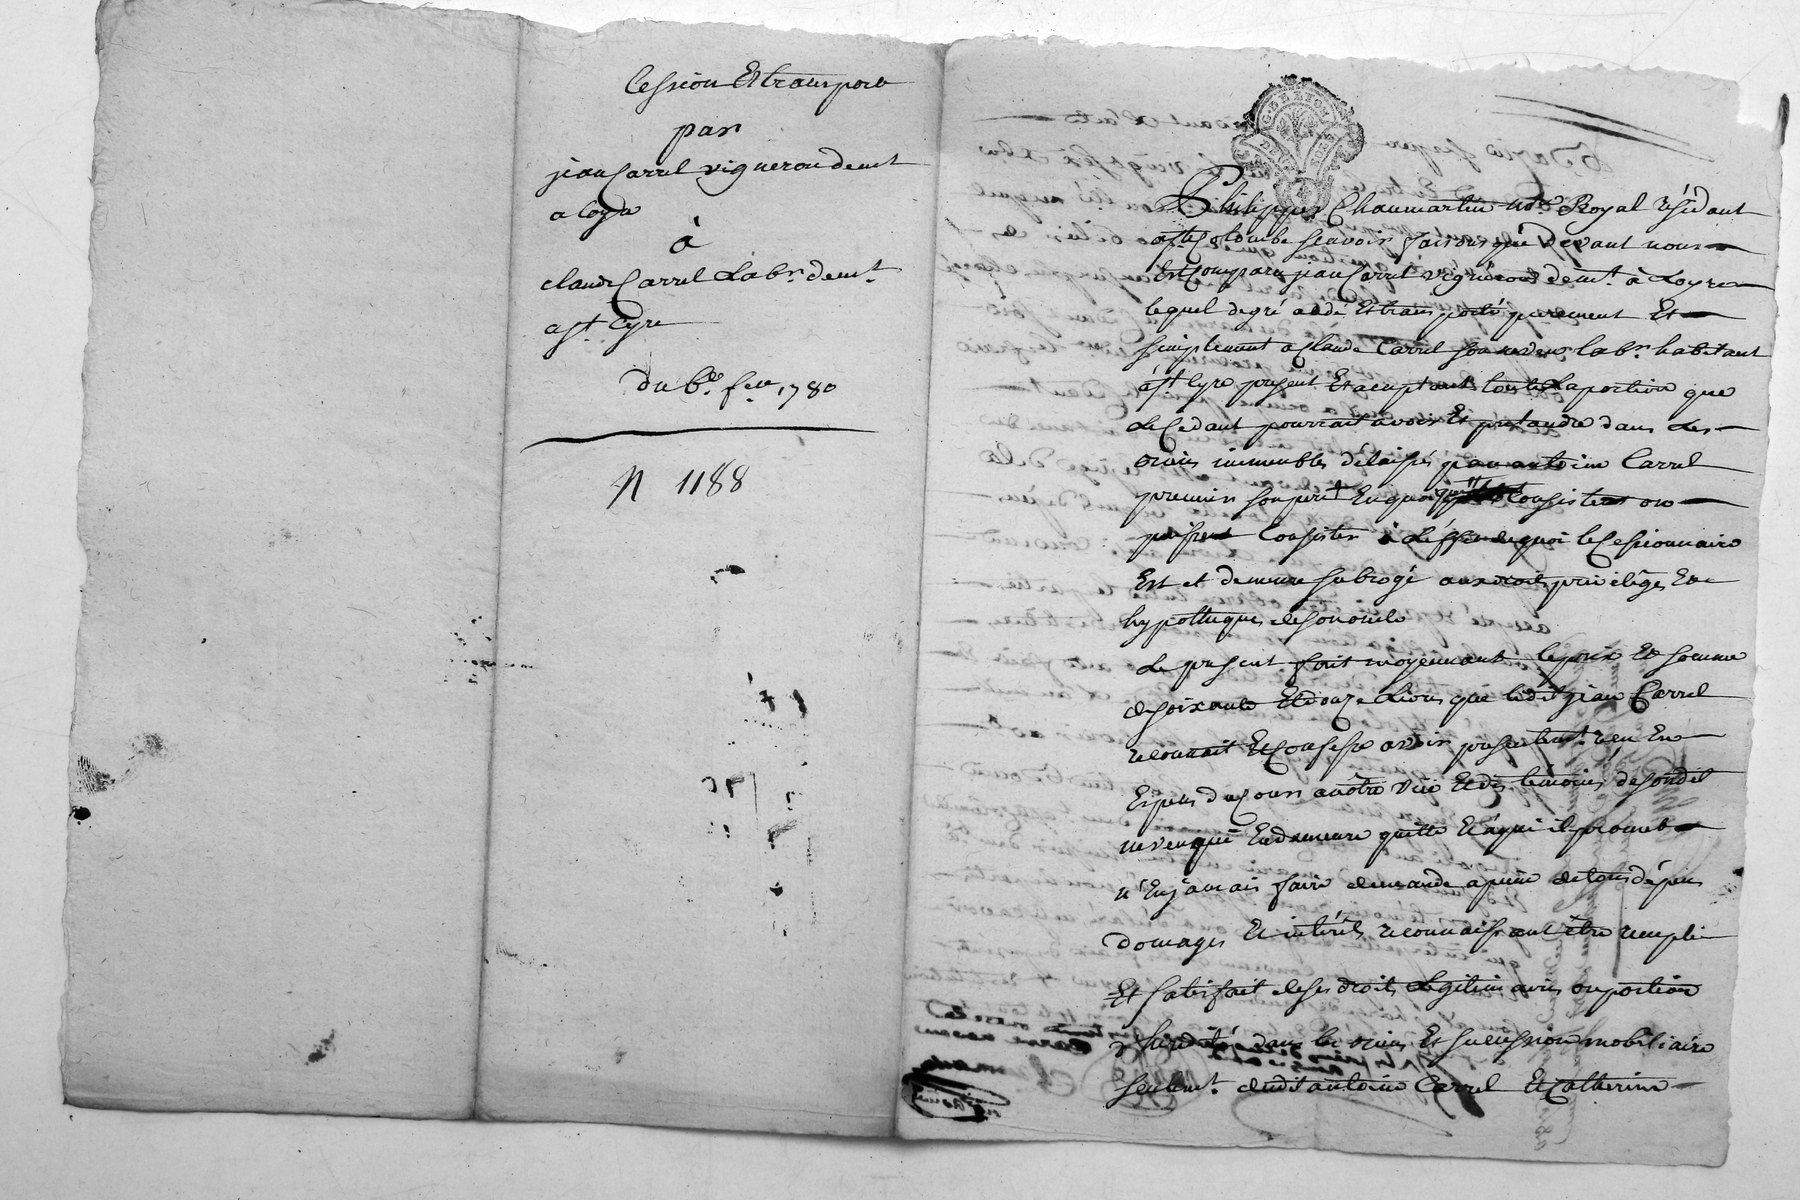 Cession Et transport
par
jean Carrel vigneron demt
a Loyre
à
claude Carrel Labr. demt.
a st Cyre
du 6e. fer. 1780
N 1188
Philippes Chaumartin nore Royal résidant
a ste Colombe scavoir faisons que devant nous
Est Comparu jean Carrel vigneron demt. à Loyre
lequel de gré a cédé Et transporté purement Et
simplement a Claude Carrel son neveu labr. habitant
à st Cyre present Et aceptant toutte La portion que
Le Cedant pourrait avoir Et pretandre dans Les
biens immeubles délaissés par antoine Carrel
premier son pere Enquoi qu'ils Consistent ou
puissent Consister à L'effet de quoi le Cessionnaire
Est et demeure subrogé aux droits privilêges Et
hypotheques de son oncle
Le present fait moyennant le prix Et somme
de soixante Et douze Livres que ledit jean Carrel
reconnait Et Confesse avoir presentemt. reçu En
Espèces du Cours a nôtre vüe Et des témoins de sondit
neveu qui En demeure quitte Et à qui il promet
n'En jamais faire demande a peine de tous dépens
domages Et intérêts reconnaissant être rempli
Et satisfait de ses droits Légitimaires ou portion
d'heredité dans les biens Et succession mobiliaire
seulemt. dudit antoine Carrel Et Catherine